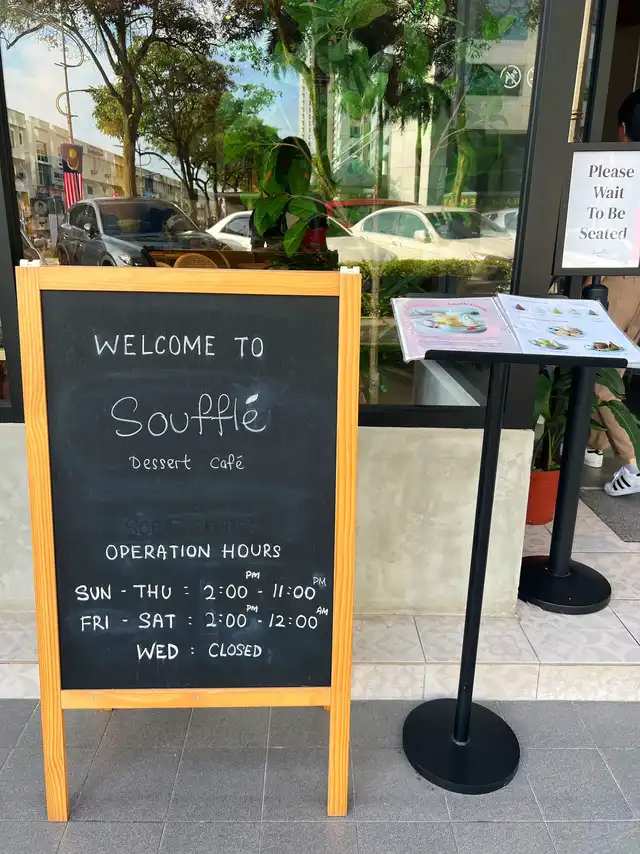 WELCOME TO
Soufflé
Dessert Café
OPERATION HOURS
SUN - THU : 2:00 PM - 11:00 PM
FRI - SAT : 2:00 PM - 12:00 AM
WED : CLOSED
Please
Wait
To Be
Seated